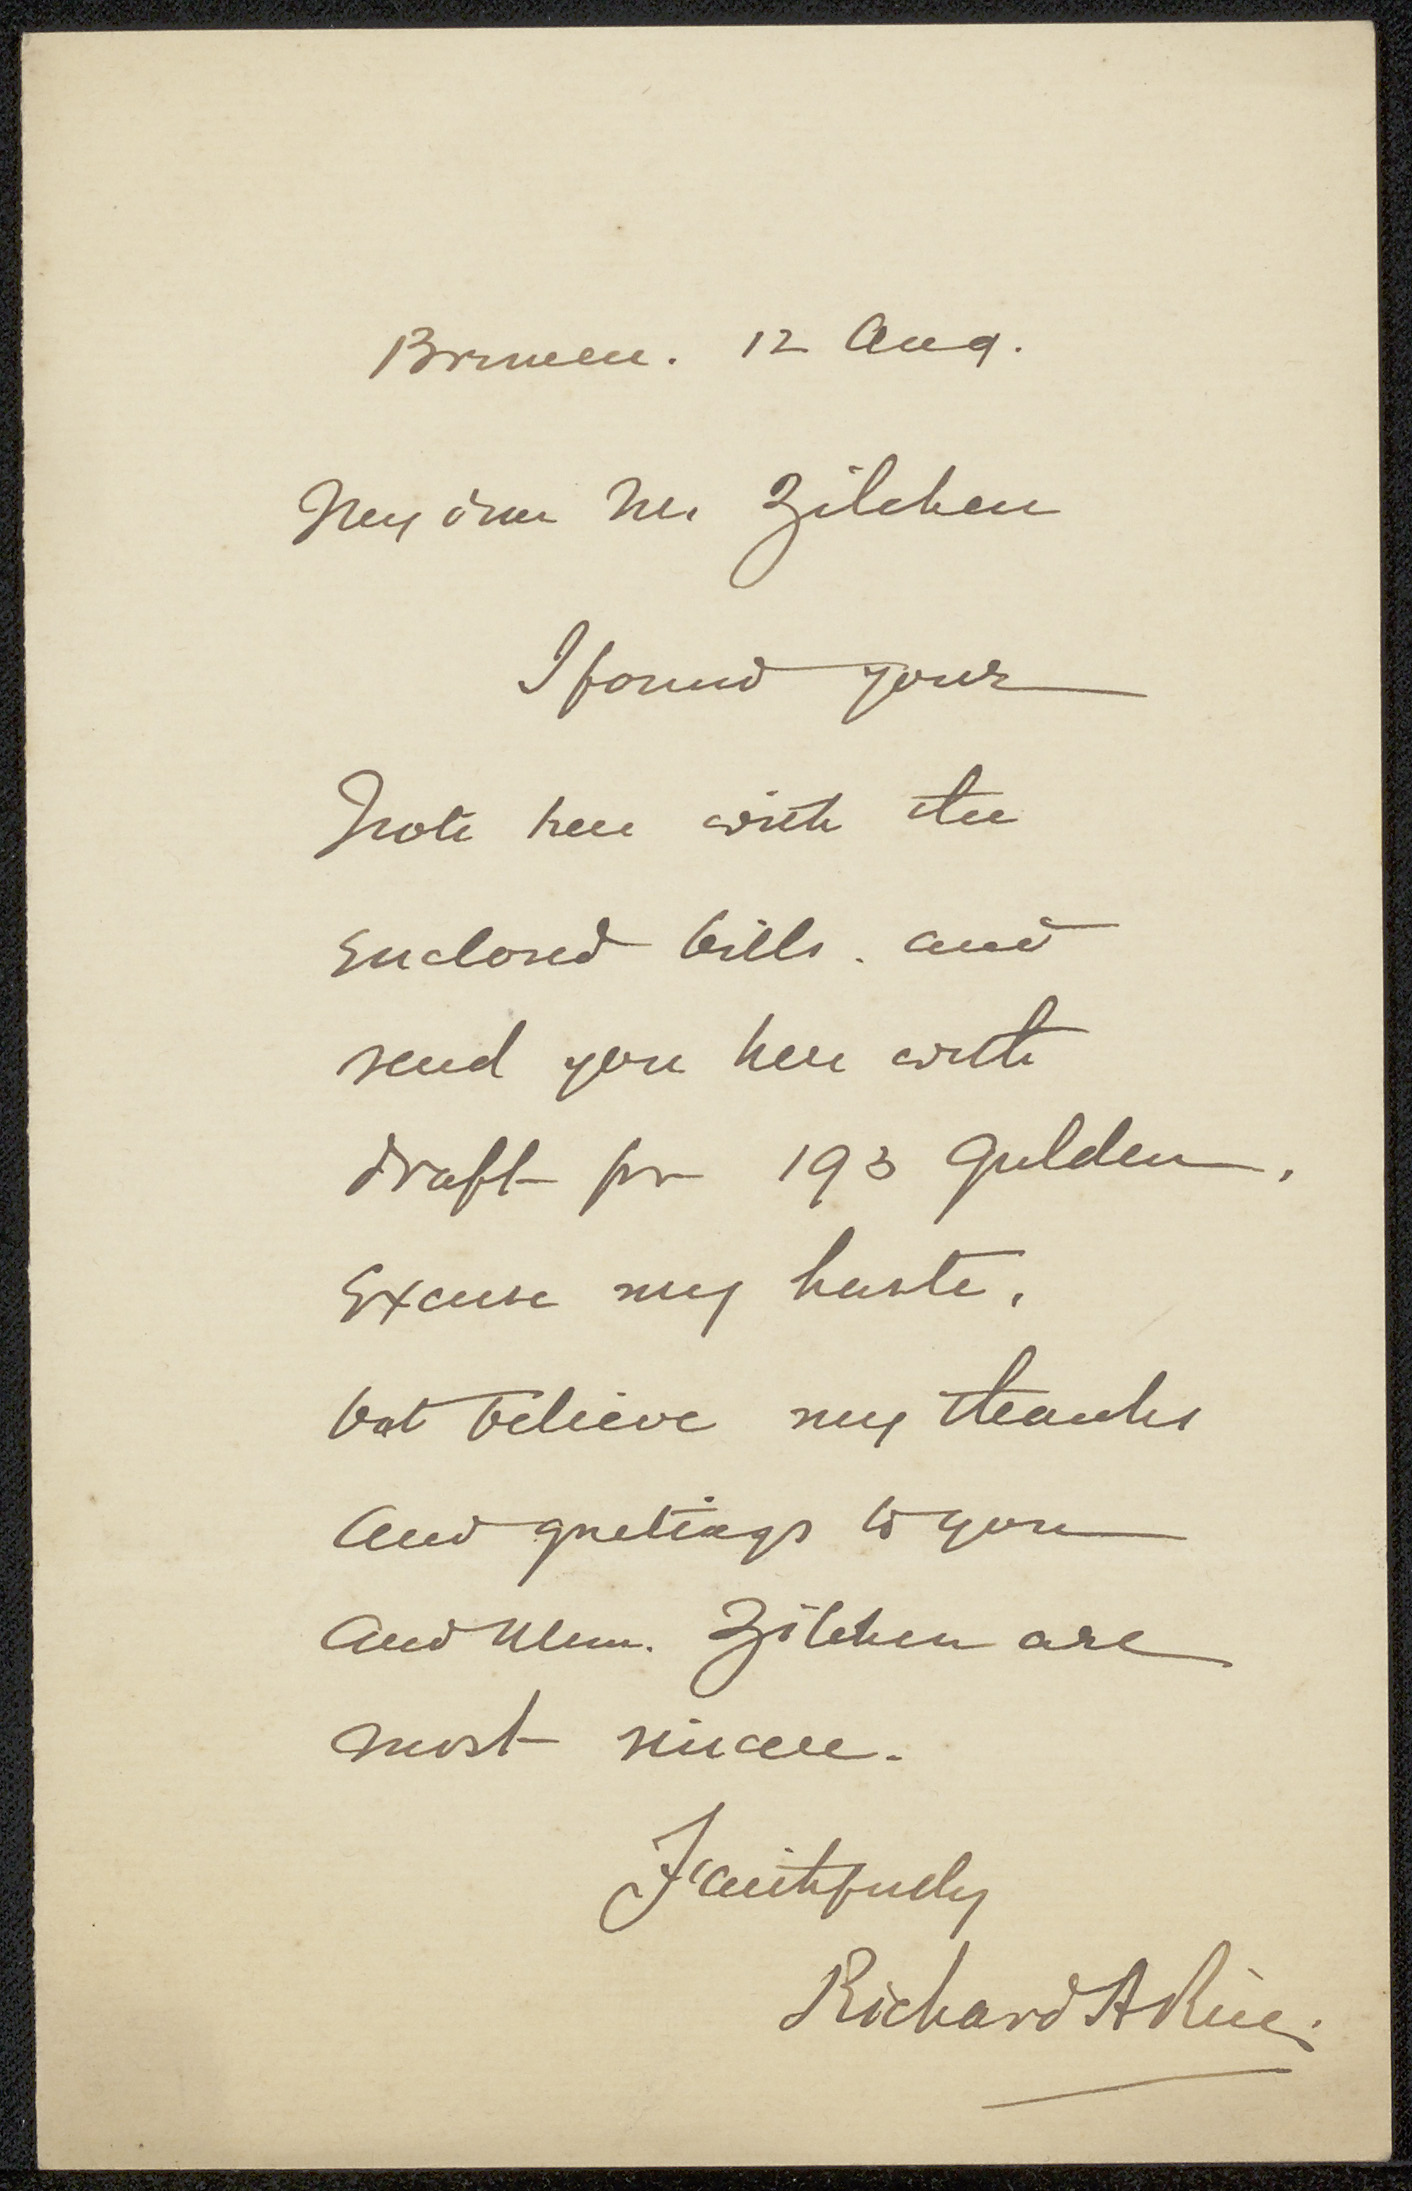 Bremen. 12 Aug.
My dear Mr. Zilcken
I found your
note here with the
enclosed bills. and
send you here with
draft for 193 gulden.
Excuse my haste,
but believe my thanks
and greetings to you
and Mem. Zilcken are
most sincere.
Faithfully
Richard A Rice.